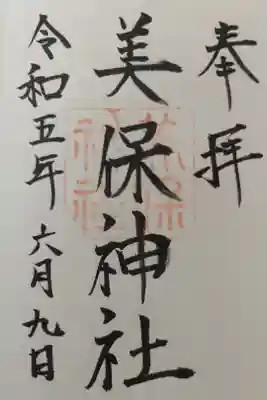 奉拝
美保神社
令和五年 六月九日